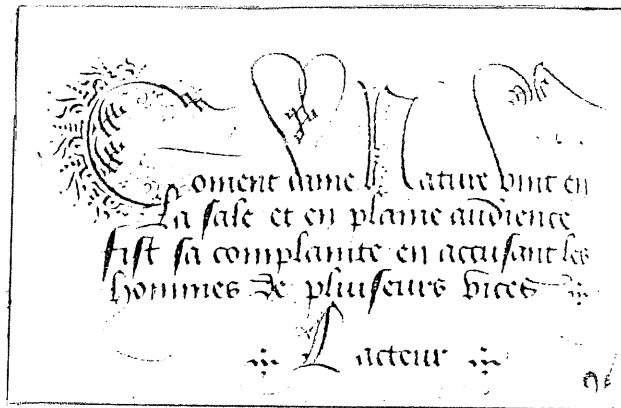 Coment dame Nature vint en
La sale et en plaine audience
fist sa complainte en accusant les
hommes de pluiseurs vices
Lacteur